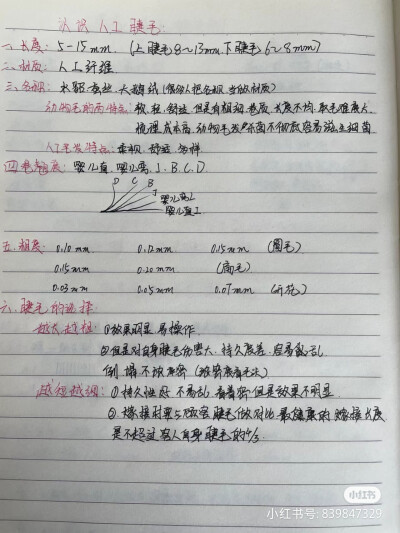 认识人工睫毛
一、长度: 5-15mm. (上睫毛8~13mm.下睫毛6~8mm)
二、材质: 人工纤维.
三、名称: 水貂毛,
动物毛的特点: 软,轻,舒适,但是有粗细,卷度,长度不均,取毛难度大,
梳理成本高,动物毛发杀菌不彻底容易滋生细菌
人工毛发特点: 柔顺,舒适,多样
四、卷翘度: 婴儿直、婴儿弯、J、B、C、D
D C B
J
婴儿弯
婴儿直
五、粗度: 0.10mm 0.12mm 0.15mm (圆毛)
0.15mm 0.20mm (扁毛)
0.03mm 0.05mm 0.07mm (开花)
六、睫毛的选择
越长越粗: ①效果明显,易操作.
②但是对自身睫毛伤害大、持久度差、容易乱
越短越细: ①持久性好 不易乱,但是效果不明显.
②嫁接时要与顾客睫毛做对比,最健康的嫁接长度
是不超过客人自身睫毛的
小红书
小红书号: 839847329